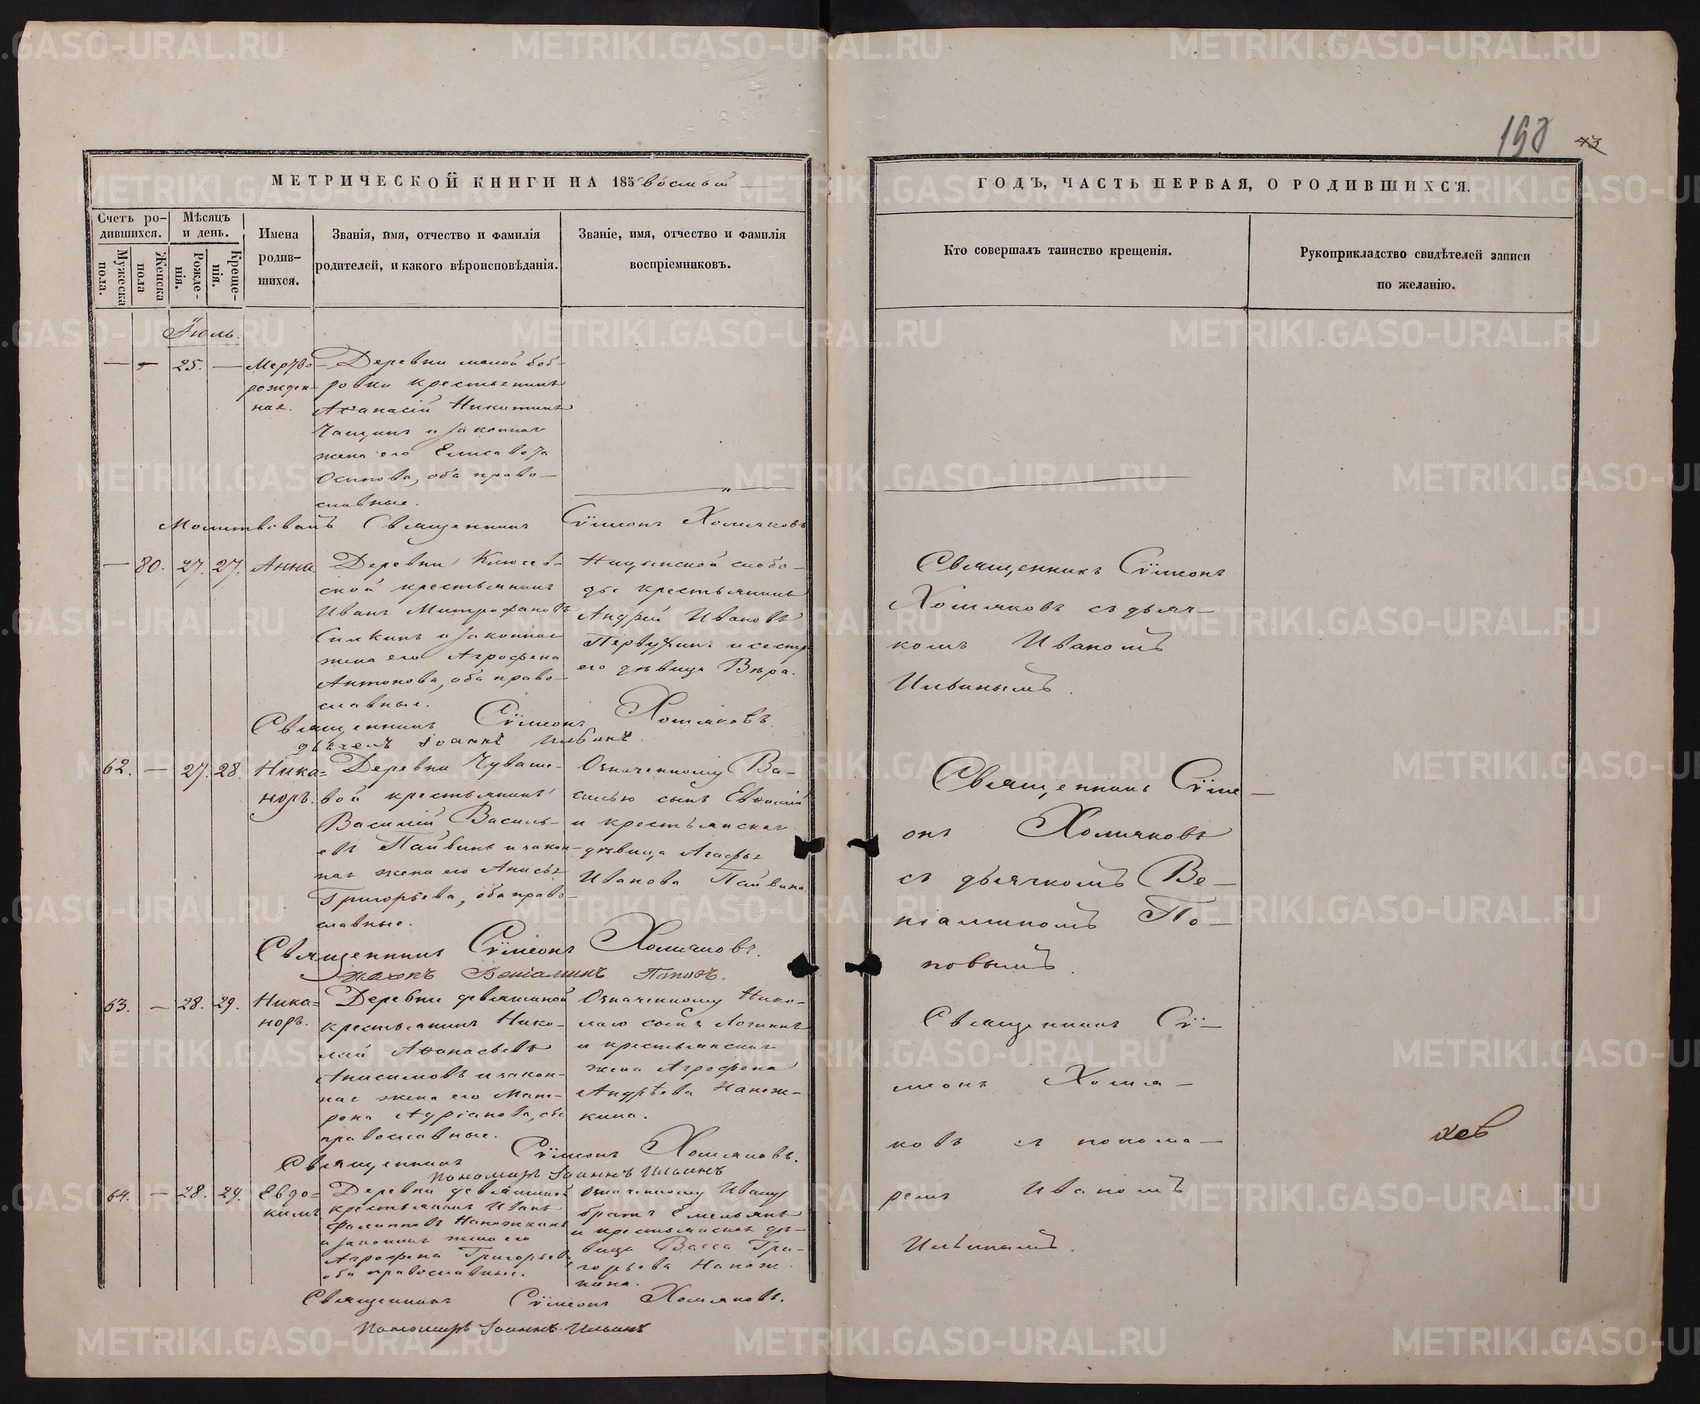 198
МЕТРИЧЕСКОЙ КНИГИ НА 185 восьмый
ГОДЪ, ЧАСТЬ ПЕРВАЯ, О РОДИВШИХСЯ.
Счетъ родившихся.
Мужеска пола.
Женска пола
Мѣсяцъ и день.
Рожденія.
Крещенія.
Имена родившихся.
Званія, имя, отчество и фамилія
родителей, и какого вѣроисповѣданія.
Званіе, имя, отчество и фамилія
воспріемниковъ.
Кто совершалъ таинство крещенія.
Рукоприкладство свидѣтелей записи
по желанію.
Іюль.
— — 25. —
Мертво
рожден
ная.
Деревни малой Боб-
ровки крестьянинъ
Аѳанасій Никитинъ
Чащинъ и законная
жена его Елисавета
Осипова, оба право-
славные.
Молитвовалъ Священникъ Сѵмеонъ Хомяковъ
— 80. 27. 27.
Анна
Деревни Ключев-
ской крестьянинъ
Иванъ Митрофановъ
Силкинъ и законная
жена его Агрофена
Антонова, оба право-
славные.
Ницынской слобо-
ды крестьянинъ
Андрей Ивановъ
Первухинъ и сестра
его дѣвица Вѣра.
Священникъ Сѵмеонъ
Хомяковъ съ дьяч-
комъ Иваномъ
Ильинымъ.
Священникъ Сѵмеонъ Хомяковъ.
Іоаннъ Ильинъ.
62. — 27. 28.
Ника=
норъ.
Деревни Чуваше-
вой крестьянинъ
Василій Василь-
евъ Пайвинъ и закон-
ная жена его Анисья
Григорьева, оба право-
славные.
Означенному Ва-
силью сынъ Евѳимій
и крестьянская
дѣвица Агафья
Иванова Пайвина.
Священникъ Сѵме-
онъ Хомяковъ
съ дьячкомъ Ве-
ніаминомъ По-
повымъ.
Священникъ Сѵмеонъ Хомяковъ.
Веніаминъ Поповъ.
63. — 28. 29.
Ника=
норъ.
Деревни девяшиной
крестьянинъ Нико-
лай Аѳанасьевъ
Анисимовъ и закон-
ная жена его Мат-
рона Адріанова, оба
православные.
Означенному Нико-
лаю сынъ Логинъ
и крестьянская
жена Агрофена
Андрѣева Нанож-
кина.
Священникъ Сѵ-
меонъ Хомя-
ковъ съ понома-
ремъ Иваномъ
Ильинымъ.
Священникъ Сѵмеонъ Хомяковъ.
Пономарь Іоаннъ Ильинъ
64. — 28. 29.
Евдо-
кимъ
Деревни девяшиной
крестьянинъ Иванъ
Филипповъ Наножкинъ
и законная жена его
Агрофена Григорьева,
оба православные.
Означенному Ивану
братъ Емельянъ
и крестьянская дѣ-
вица Васса Гри-
горьева Нанож-
кина.
Священникъ Сѵмеонъ Хомяковъ.
Пономарь Іоаннъ Ильинъ
METRIKI.GASO-URAL.RU